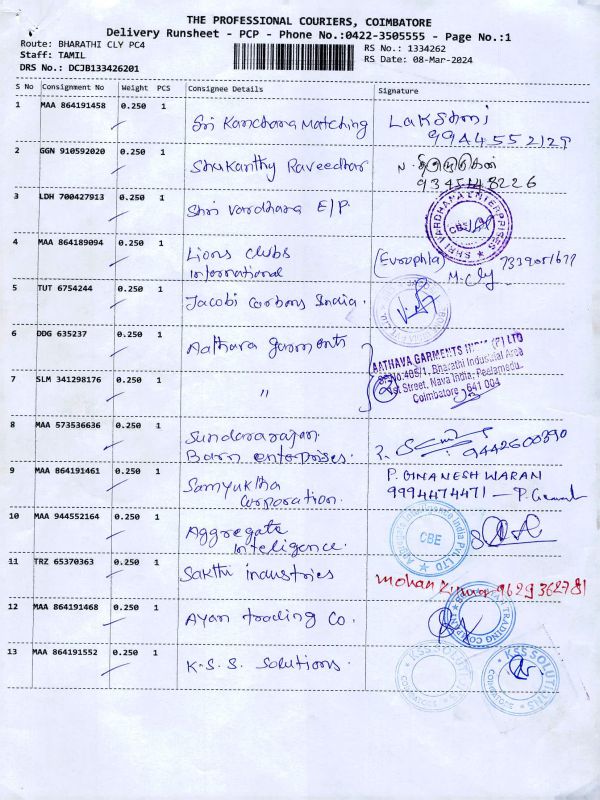 THE PROFESSIONAL COURIERS, COIMBATORE
Delivery Runsheet - PCP - Phone No.:0422-3505555 - Page No.:1
Route: BHARATHI CLY PC4
Staff: TAMIL
DRS No.: DCJB133426201
RS No.: 1334262
RS Date: 08-Mar-2024
S No Consignment No Weight PCS Consignee Details Signature
1 MAA 864191458 0.250 1 Sri Kanchana Matching Lakshmi
9944552129
2 GGN 910592020 0.250 1 Shukanthy Raveedhar N.
9345148226
3 LDH 700427913 0.250 1 Shri Vardhana E/P.
SHRI VARDHANA ENTERPRISES
CBE
4 MAA 864189094 0.250 1 Lions clubs
International
M-Cly
5 TUT 6754244 0.250 1 Jacobi Carbons India.
6 DDG 635237 0.250 1 Aathava garments
AATHAVA GARMENTS INDIA (P) LTD
SF.No:405/1, Bharathi Industrial Area
1st Street, Nava India, Peelamedu,
Coimbatore - 641 004
7 SLM 341298176 0.250 1 "
8 MAA 573536636 0.250 1 Sundararajan 9442600390
Barn enterprises.
9 MAA 864191461 0.250 1 Samyuktha P. GNANESH WARAN
Corporation. 9994474471 - P.
10 MAA 944552164 0.250 1 Aggregate
Inteligence.
Aggregate Intelligence India Pvt LTD
CBE
11 TRZ 65370363 0.250 1 Sakthi industries mohan Kumar 9629362781
12 MAA 864191468 0.250 1 Ayan trading Co.
TRADING COMPANY
13 MAA 864191552 0.250 1 K.S.S. Solutions.
KSS SOLUTIONS
COIMBATORE
KSS SOLUTIONS
COIMBATORE